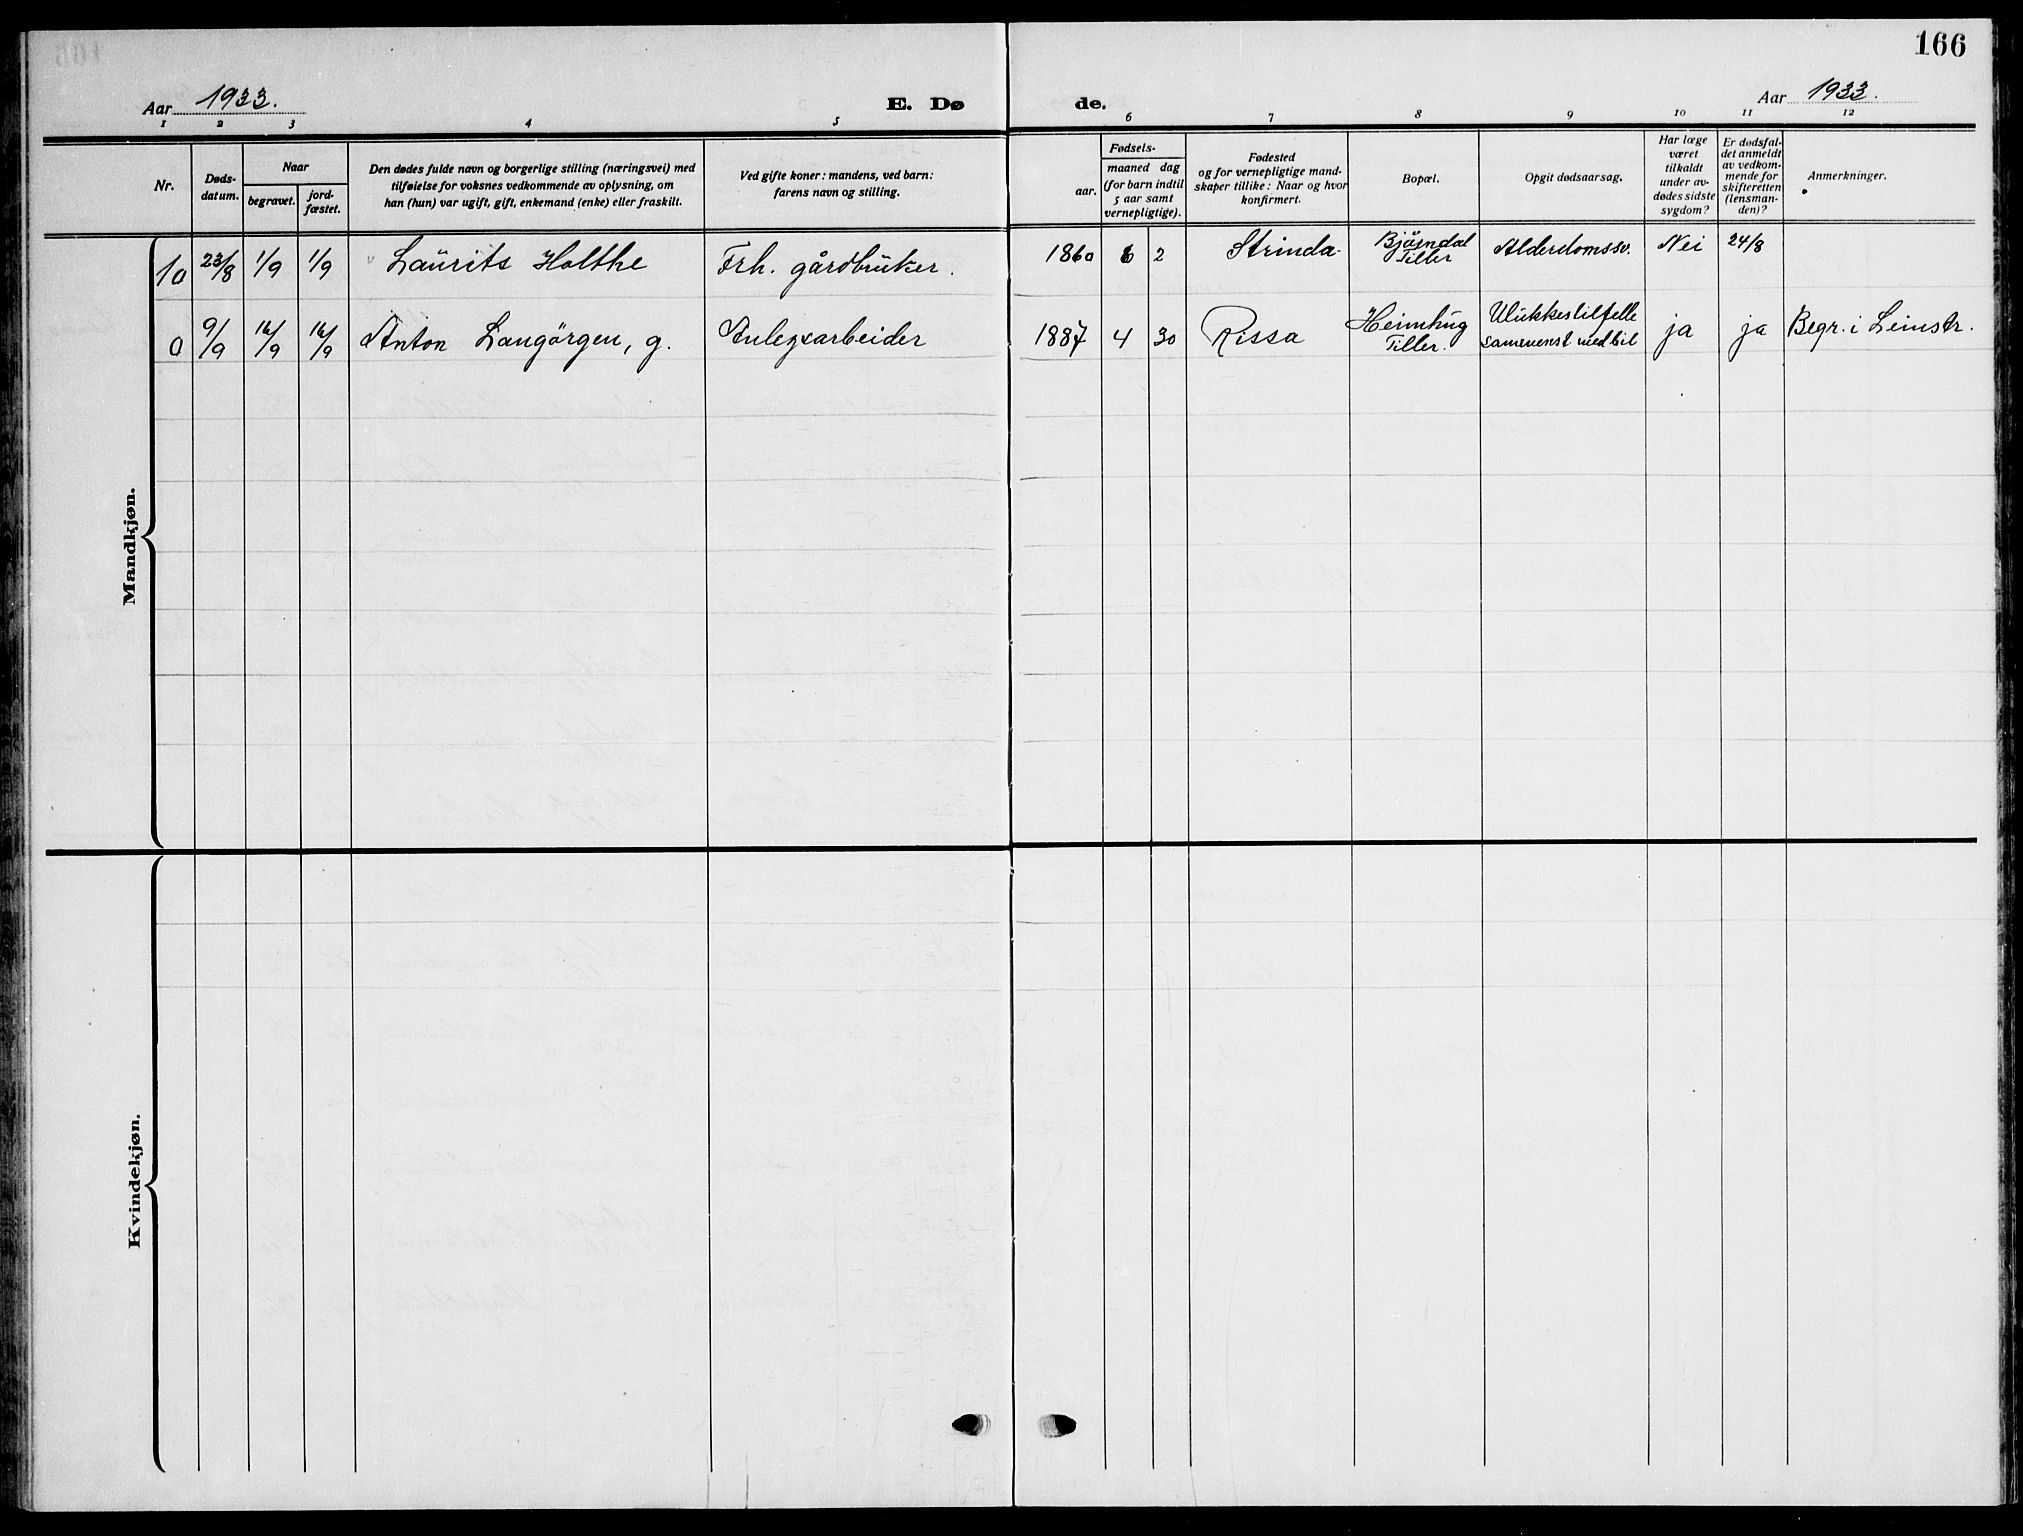 166
Aar 1933.
E. Dø
de.
Aar 1933.
1 2 3 4 5 6 7 8 9 10 11 12
Nr.
Døds-
datum.
Naar
begravet.
jord-
fæstet.
Den dødes fulde navn og borgerlige stilling (næringsvei) med
tilføielse for voksnes vedkommende av oplysning, om
han (hun) var ugift, gift, enkemand (enke) eller fraskilt.
Ved gifte koner: mandens, ved barn:
farens navn og stilling.
Fødsels-
aar.
maaned dag
(for barn indtil
5 aar samt
vernepligtige).
Fødested
og for vernepligtige mand-
skaper tillike: Naar og hvor
konfirmert.
Bopæl.
Opgit dødsaarsag.
Har læge
været
tilkaldt
under av-
dødes sidste
sygdom?
Er dødsfal-
det anmeldt
av vedkom-
mende for
skifteretten
(lensman-
den)?
Anmerkninger.
Mandkjøn.
10 23/8 1/9 1/9 Laurits Holthe Frh. gårdbruker. 1860 6 2 Strinda Bjørndal Tiller Alderdomssv. Nei 24/8
0 9/9 16/9 16/9 Anton Langørgen, g. Anlegsarbeider 1887 4 30 Rissa Heimhug Tiller. Ulukkestilfelle samenst. med bil ja ja Begr. i Leinstr.
Kvindekjøn.